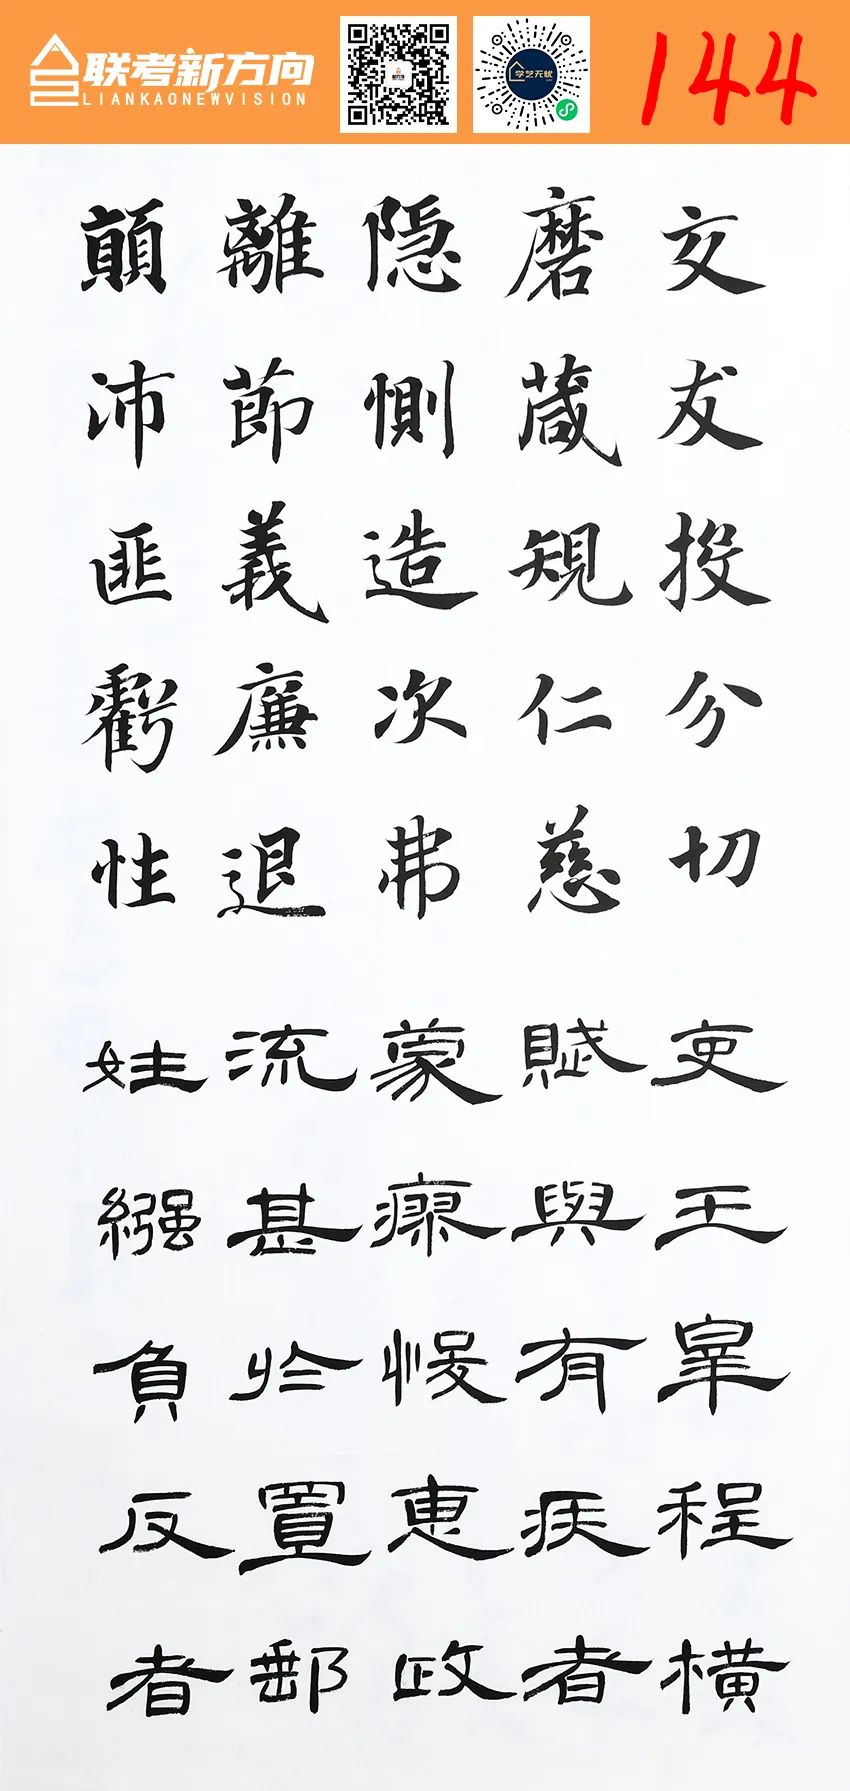 联考新方向
LIANKAONEWVISION
学艺无忧
144
交友投分切
磨蔵規仁慈
隐惻造次弗
離莭義廉退
顛沛匪虧性
吏王皐程横
賦與有疾者
蒙瘳悛恵政
流甚於置郵
姓繈負反者